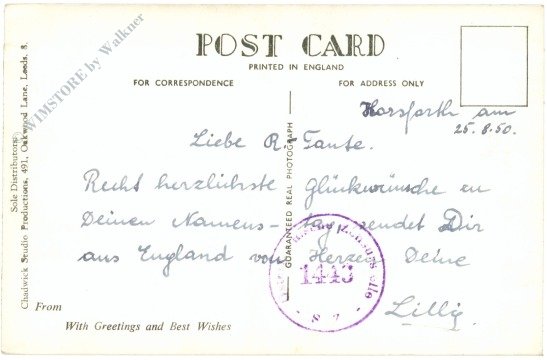 WIMSTORE by Walkner
POST CARD
PRINTED IN ENGLAND
FOR CORRESPONDENCE
FOR ADDRESS ONLY
Horsforth am
25.8.50.
Liebe R.-Tante.
Recht herzlichste Glückwünsche en
Deinen Namens-tag sendet Dir
aus England von Herzen Deine
Lillig
GUARANTEED REAL PHOTOGRAPH
1443
Sole Distributors
Chadwick Studio Productions, 491, Oakwood Lane, Leeds, 8.
From
With Greetings and Best Wishes